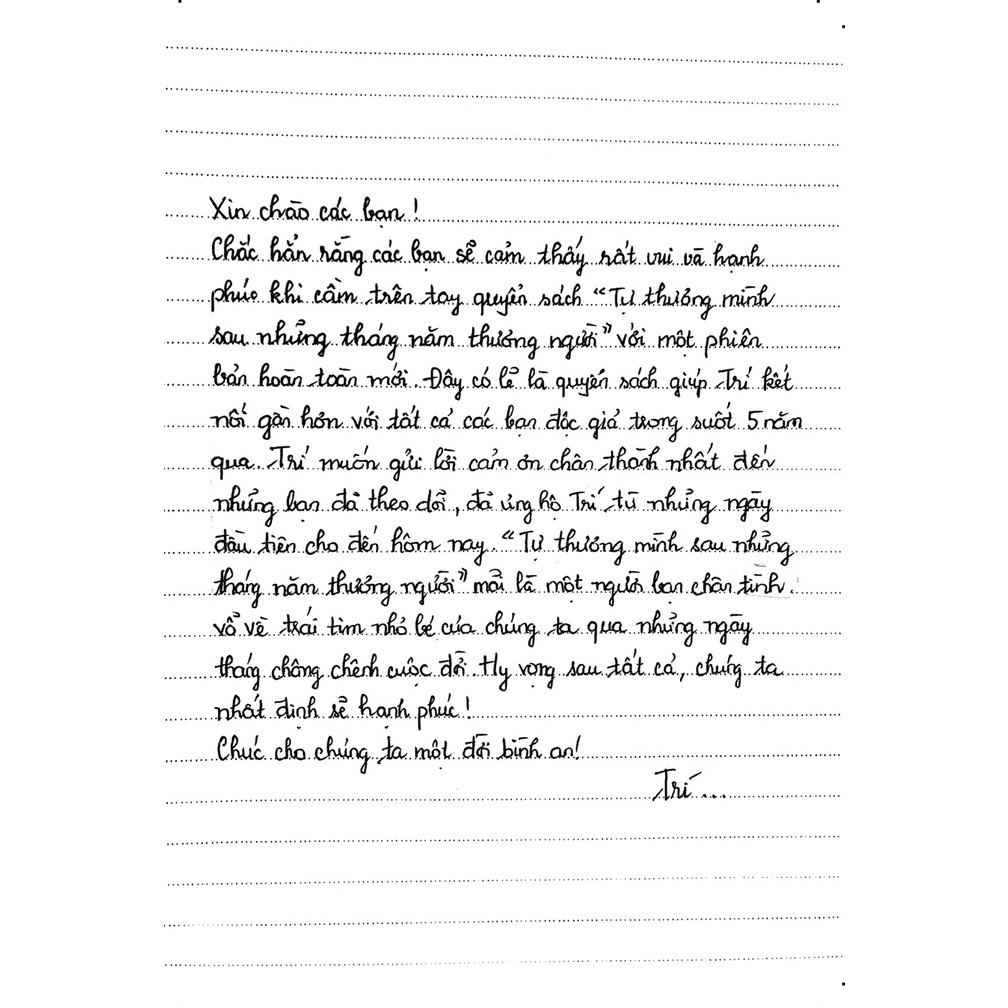 Xin chào các bạn!
Chắc hẳn rằng các bạn sẽ cảm thấy rất vui và hạnh
phúc khi cầm trên tay quyển sách "Tự thương mình
sau những tháng năm thương người" với một phiên
bản hoàn toàn mới. Đây có lẽ là quyển sách giúp Trí kết
nối gần hơn với tất cả các bạn độc giả trong suốt 5 năm
qua. Trí muốn gửi lời cảm ơn chân thành nhất đến
những bạn đã theo dõi, đã ủng hộ Trí từ những ngày
đầu tiên cho đến hôm nay. "Tự thương mình sau những
tháng năm thương người" mãi là một người bạn chân tình.
vỗ về trái tim nhỏ bé của chúng ta qua những ngày
tháng chông chênh cuộc đời. Hy vọng sau tất cả, chúng ta
nhất định sẽ hạnh phúc!
Chúc cho chúng ta một đời bình an!
Trí...